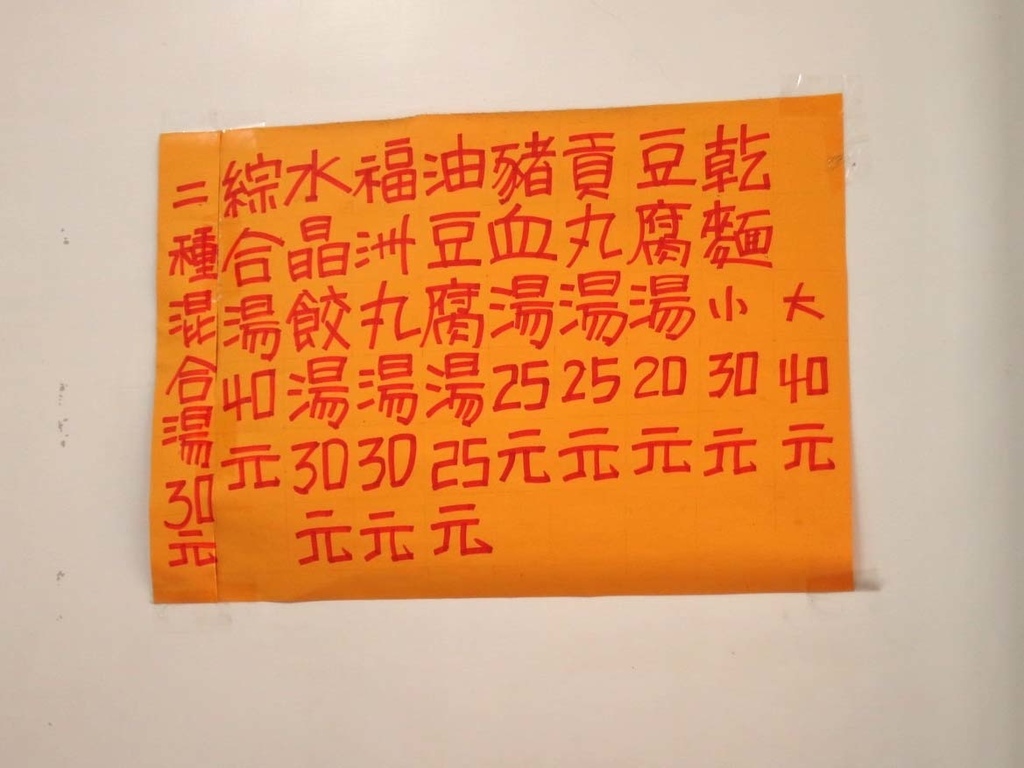 大40元
乾麵小30元
豆腐湯20元
貢丸湯25元
豬血湯25元
油豆腐湯25元
福洲丸湯30元
水晶餃湯30元
綜合湯40元
二種混合湯30元